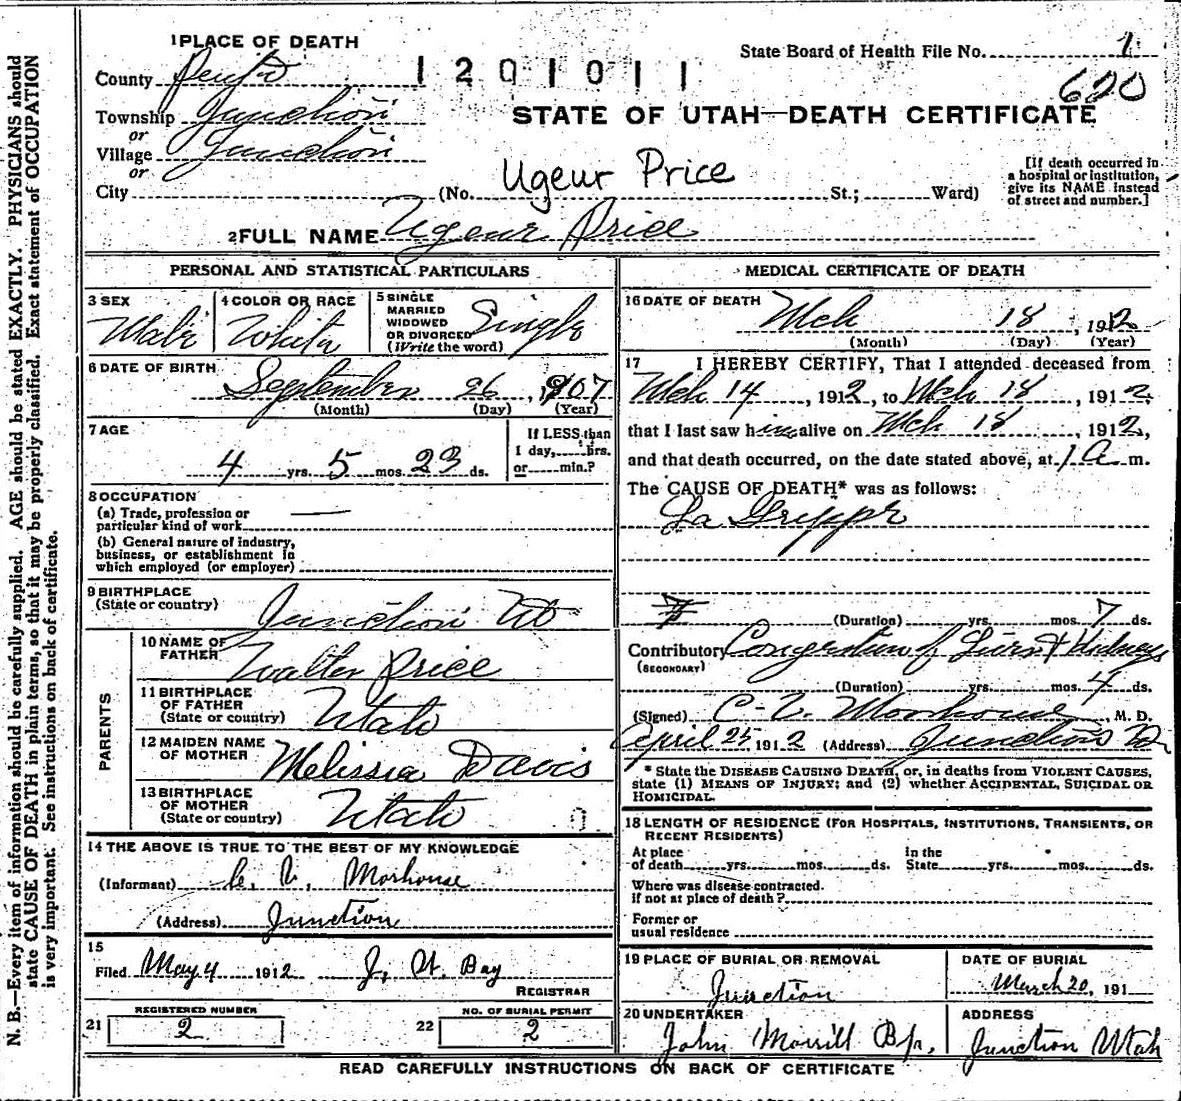 1 PLACE OF DEATH
State Board of Health File No. 1
County
1201011
620
Township Junction
or
Village Junction
or
STATE OF UTAH—DEATH CERTIFICATE
City (No. Ugeur Price St.; Ward)
[If death occurred in
a hospital or institution,
give its NAME instead
of street and number.]
2 FULL NAME Ugeur Price
PERSONAL AND STATISTICAL PARTICULARS
3 SEX
Male
4 COLOR OR RACE
White
5 SINGLE
MARRIED
WIDOWED
OR DIVORCED
(Write the word)
Single
6 DATE OF BIRTH
September 26, 1907
(Month) (Day) (Year)
7 AGE
4 yrs. 5 mos. 23 ds.
If LESS than
1 day, hrs.
or min.?
8 OCCUPATION
(a) Trade, profession or
particular kind of work —
(b) General nature of industry,
business, or establishment in
which employed (or employer)
9 BIRTHPLACE
(State or country)
Junction Ut
PARENTS
10 NAME OF
FATHER
Walter Price
11 BIRTHPLACE
OF FATHER
(State or country)
Utah
12 MAIDEN NAME
OF MOTHER
Melissia Davis
13 BIRTHPLACE
OF MOTHER
(State or country)
Utah
14 THE ABOVE IS TRUE TO THE BEST OF MY KNOWLEDGE
(Informant) C. V. Morhouse
(Address) Junction
15
Filed May 4 1912 J. H. Bay
REGISTRAR
REGISTERED NUMBER
21 2
NO. OF BURIAL PERMIT
22 2
MEDICAL CERTIFICATE OF DEATH
16 DATE OF DEATH
Mch 18, 1912
(Month) (Day) (Year)
17 I HEREBY CERTIFY, That I attended deceased from
Mch 14, 1912, to Mch 18, 1912,
that I last saw him alive on Mch 18, 1912,
and that death occurred, on the date stated above, at 1 a m.
The CAUSE OF DEATH* was as follows:
La Grippe
(Duration) yrs. mos. 7 ds.
Contributory Congestion of Liver & Kidneys
(SECONDARY)
(Duration) yrs. mos. 4 ds.
(Signed) C. V. Moorhouse, M. D.
April 25 1912 (Address) Junction
* State the DISEASE CAUSING DEATH, or, in deaths from VIOLENT CAUSES,
state (1) MEANS OF INJURY; and (2) whether ACCIDENTAL, SUICIDAL OR
HOMICIDAL.
18 LENGTH OF RESIDENCE (FOR HOSPITALS, INSTITUTIONS, TRANSIENTS, OR
RECENT RESIDENTS)
At place
of death yrs. mos. ds.
In the
State yrs. mos. ds.
Where was disease contracted.
if not at place of death?
Former or
usual residence
19 PLACE OF BURIAL OR REMOVAL
Junction
DATE OF BURIAL
March 20, 191
20 UNDERTAKER
John Morrill Bp.
ADDRESS
Junction Utah
READ CAREFULLY INSTRUCTIONS ON BACK OF CERTIFICATE
N. B.—Every item of information should be carefully supplied. AGE should be stated EXACTLY. PHYSICIANS should
state CAUSE OF DEATH in plain terms, so that it may be properly classified. Exact statement of OCCUPATION
is very important. See instructions on back of certificate.